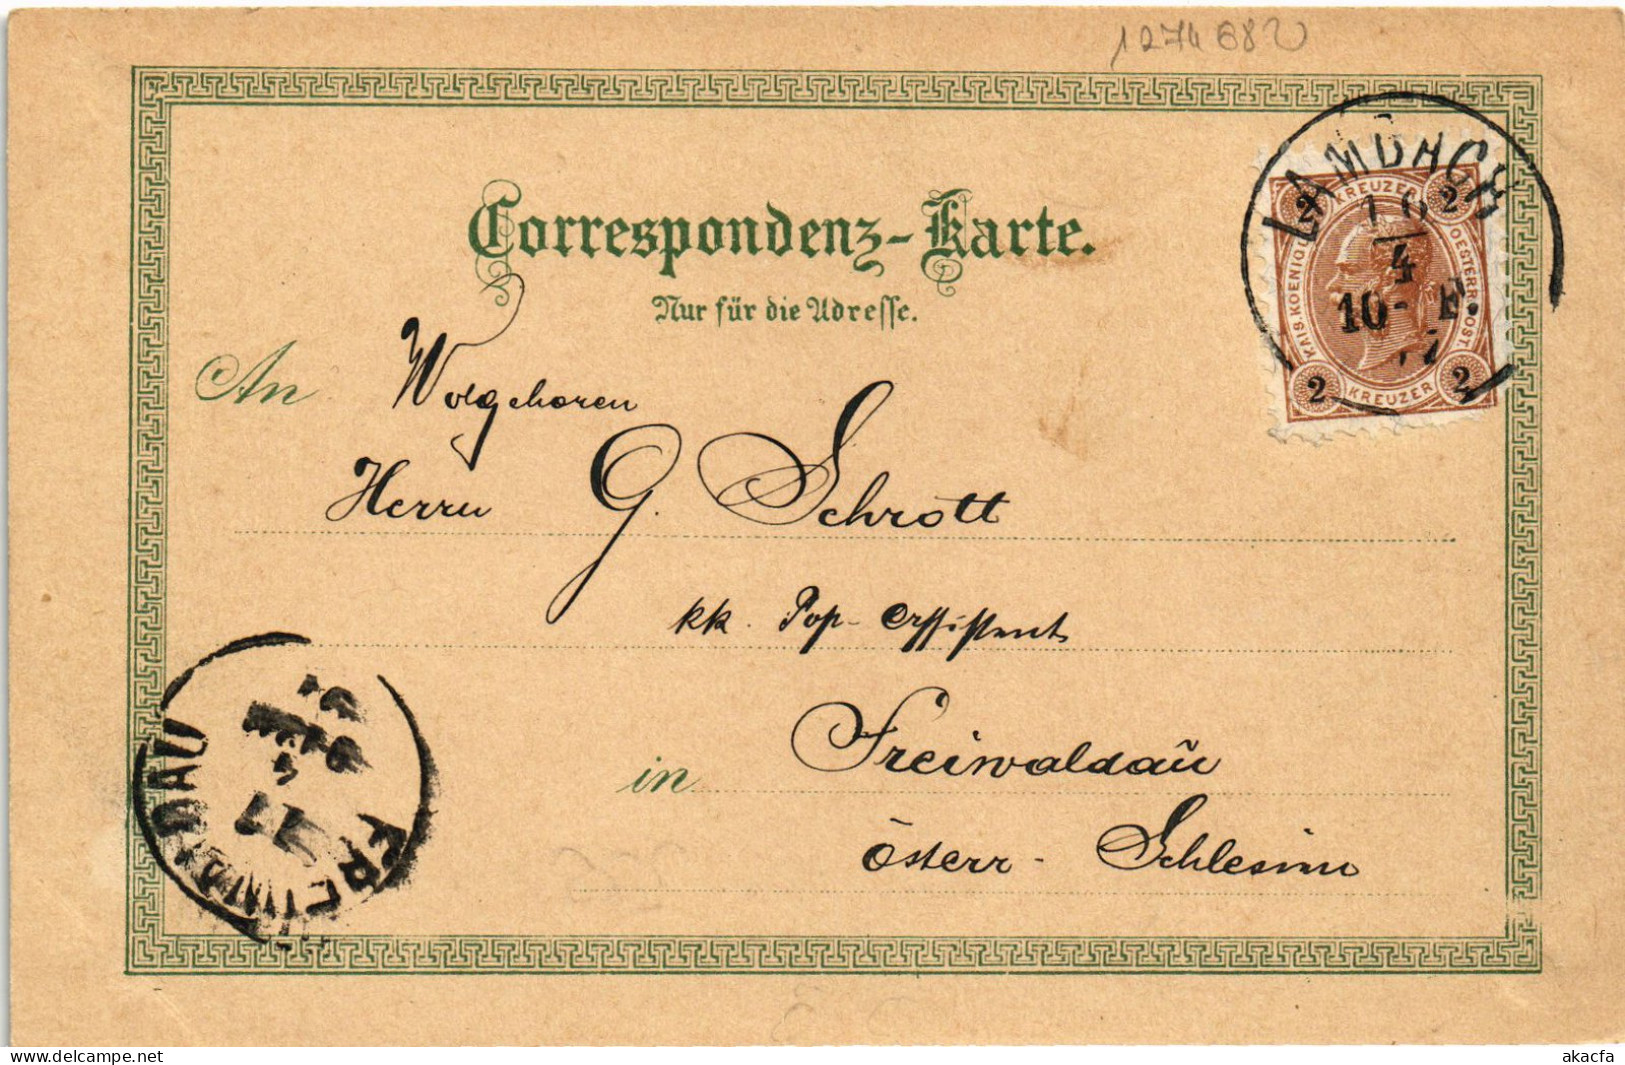 1274682
Correspondenz-Karte.
Nur für die Adresse.
LAMBACH
16
4
10- F.
KREUZER
2 2
KAIS. KOENIGL. OESTERR. POST.
2 2
KREUZER
An Wolgeboren
Herrn G. Schrott
kk. Assistent
in Freiwaldaŭ
Österr. Schlesien
FREIWALDAU
akacfa